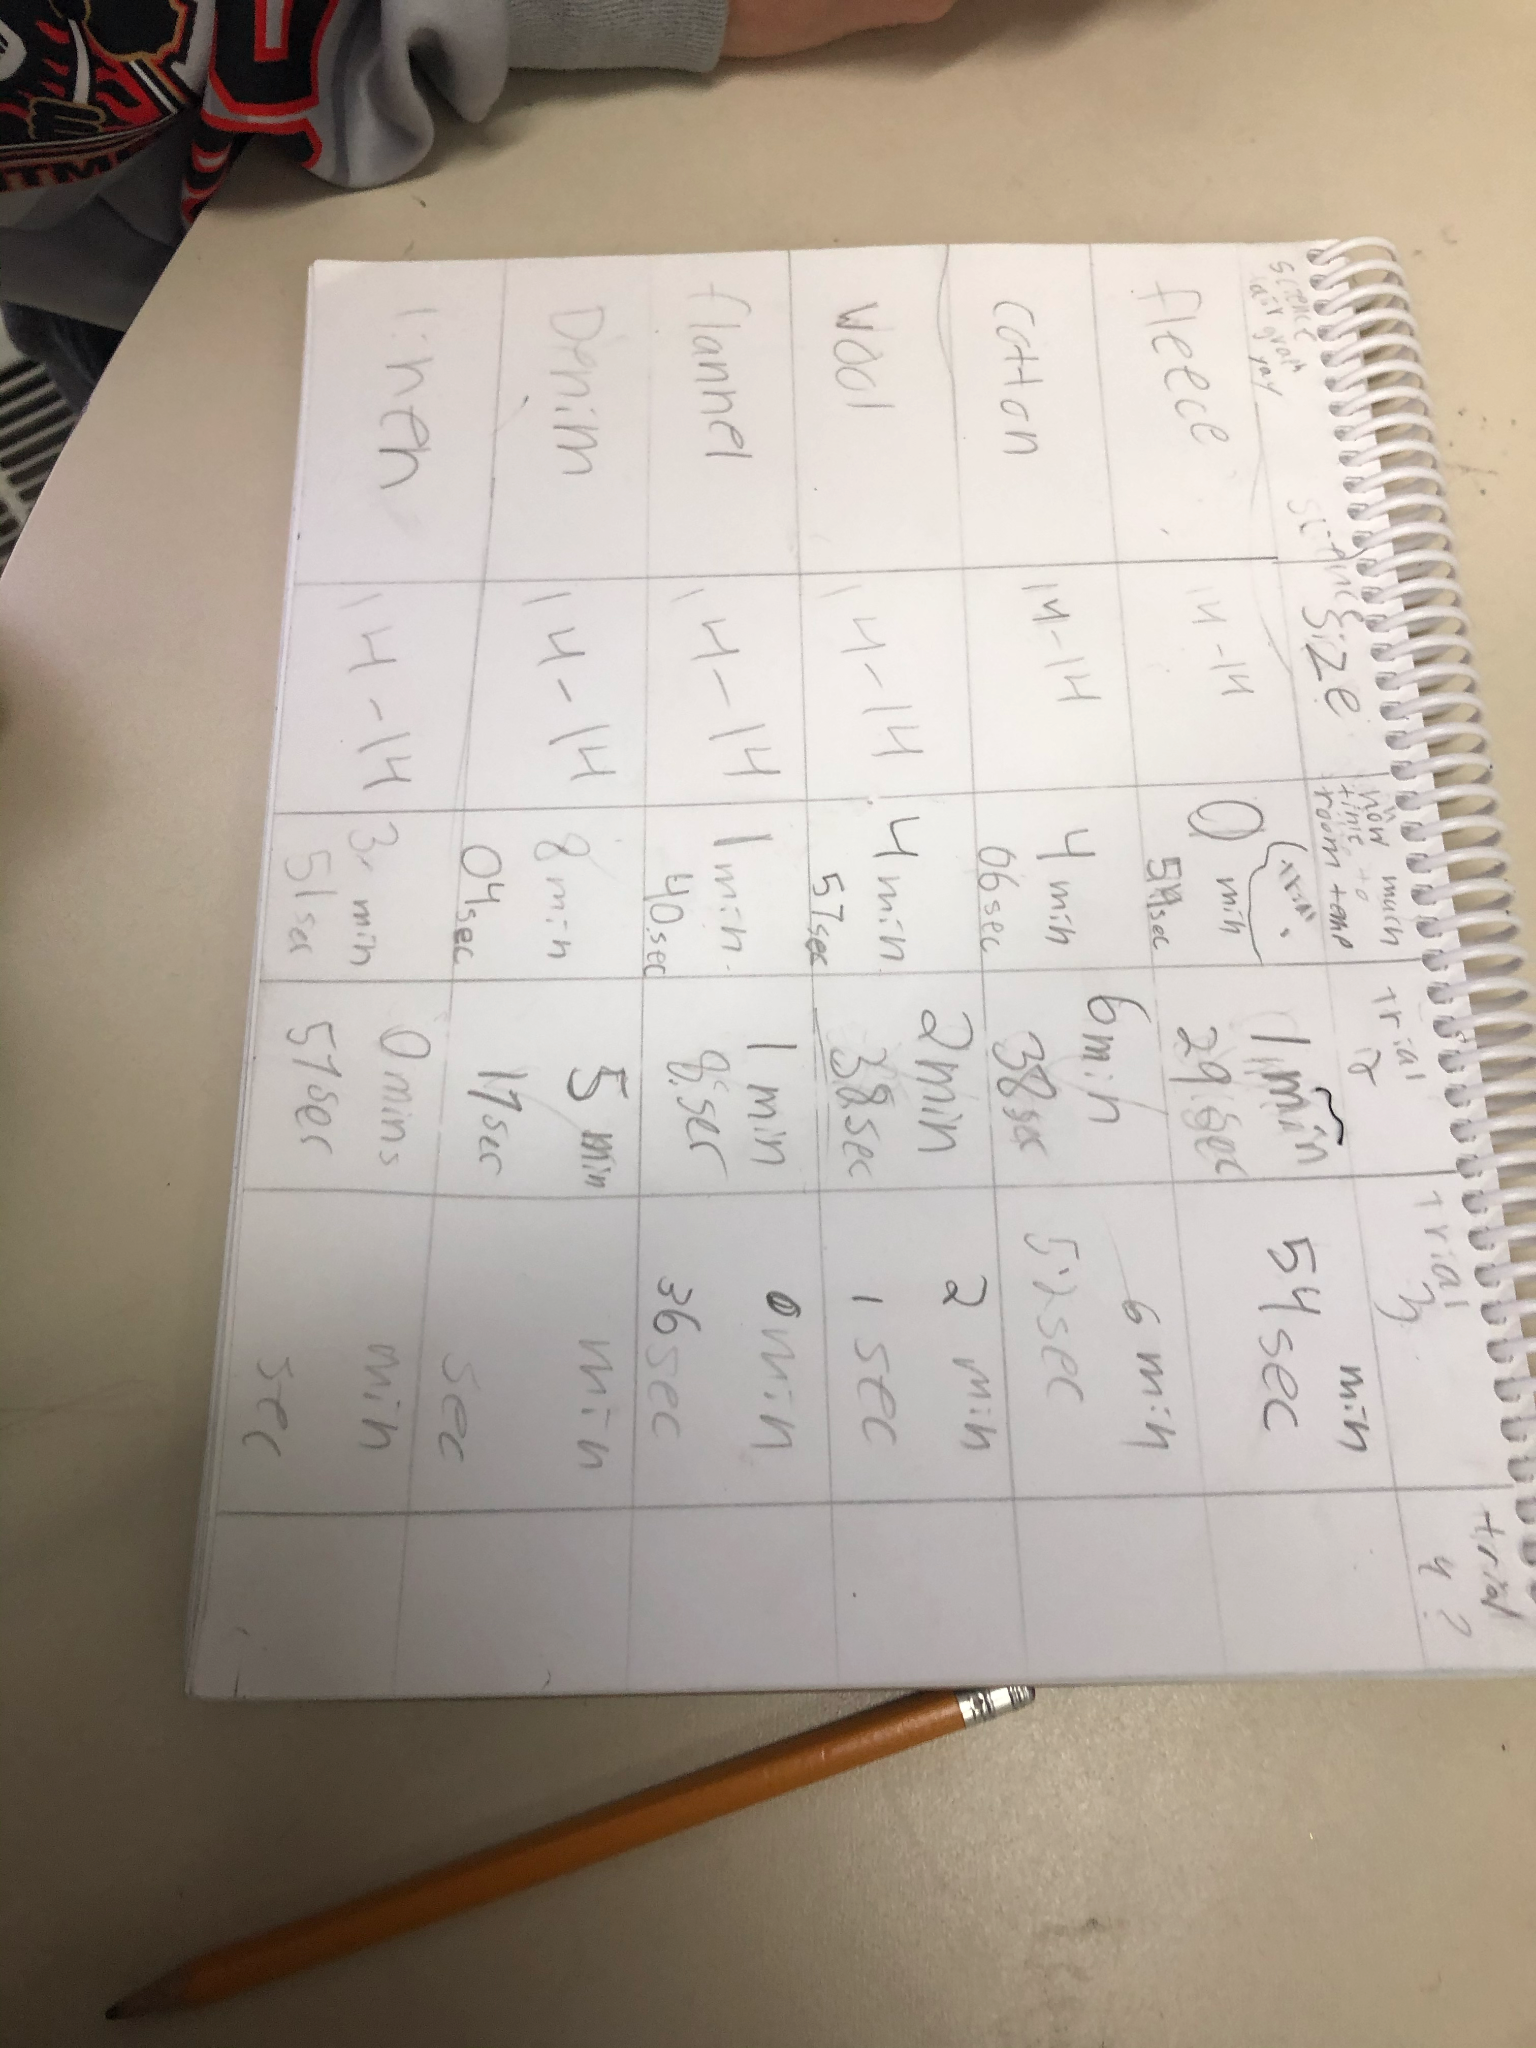 science
fair graph
yay
size
how much
time to
room temp
trial
2
trial
3
trial
4?
fleece
14-14
0 min
54sec
1 min
29 sec
min
54 sec
cotton
14-14
4 min
06sec
6 min
38 sec
6 min
sec
Wool
14-14
4 min
57sec
2 min
38 sec
2 min
1 sec
flannel
14-14
1 min
40.sec
1 min
8 sec
0 min
36 sec
Denim
14-14
8 min
04sec
5 min
17 sec
min
sec
linen
14-14
3 min
51 sec
0 mins
57 sec
min
sec